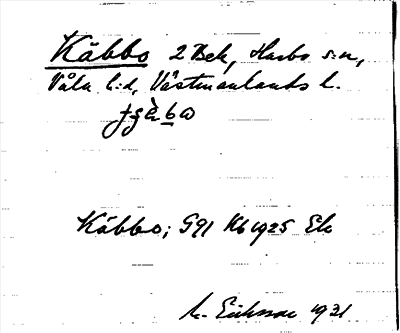 Käbbo 2 Bek, Harbo s:n,
Våla h:d, Västmanlands l.
Käbbo; G91 Kb 1925 Ek
1931